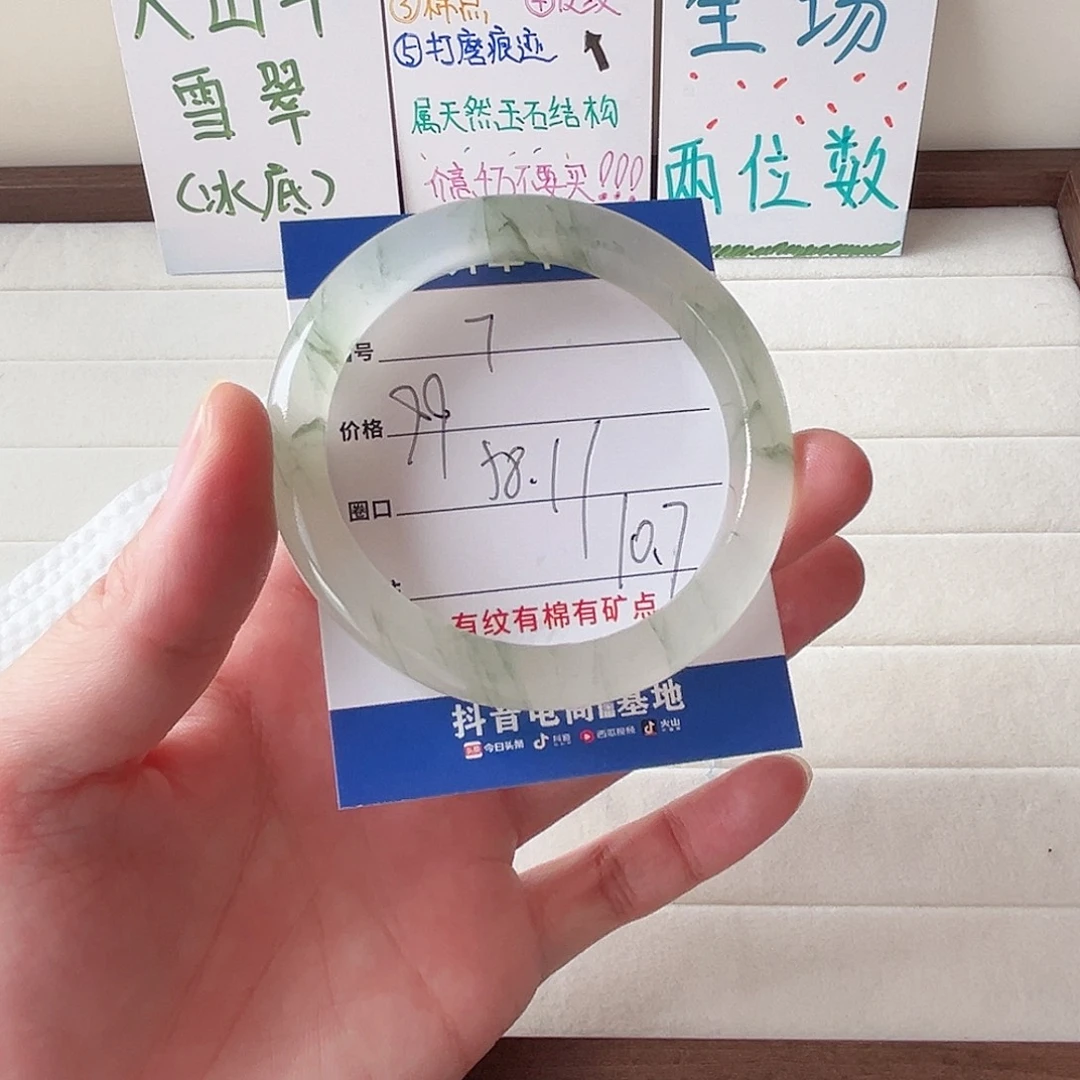 雪翠
(冰底)
⑤打磨痕迹
属天然玉石结构
全场
两位数
号 7
价格 99
圈口 58.11
10.7
有纹有棉有矿点
抖音电商 基地
今日头条 抖音 西瓜视频 火山